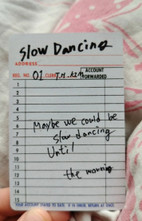 Slow Dancing
ADDRESS
REG. NO. 01 CLERK ACCOUNT FORWARDED
1
2
3
4
5
6 Maybe we could be
7 slow dancing
8 Until
9
10 the morning
11
12
13
14
15